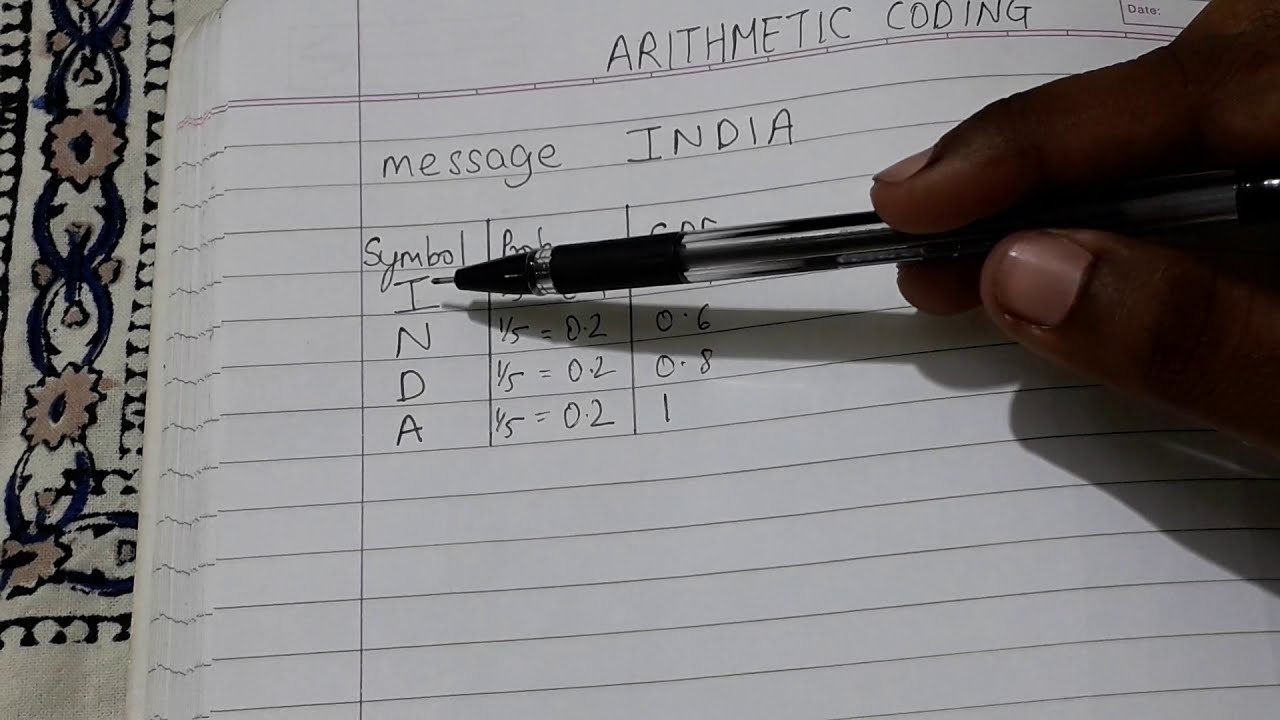 Date:
ARITHMETIC CODING
message INDIA
Symbol
I
N 1/5 = 0.2 0.6
D 1/5 = 0.2 0.8
A 1/5 = 0.2 1